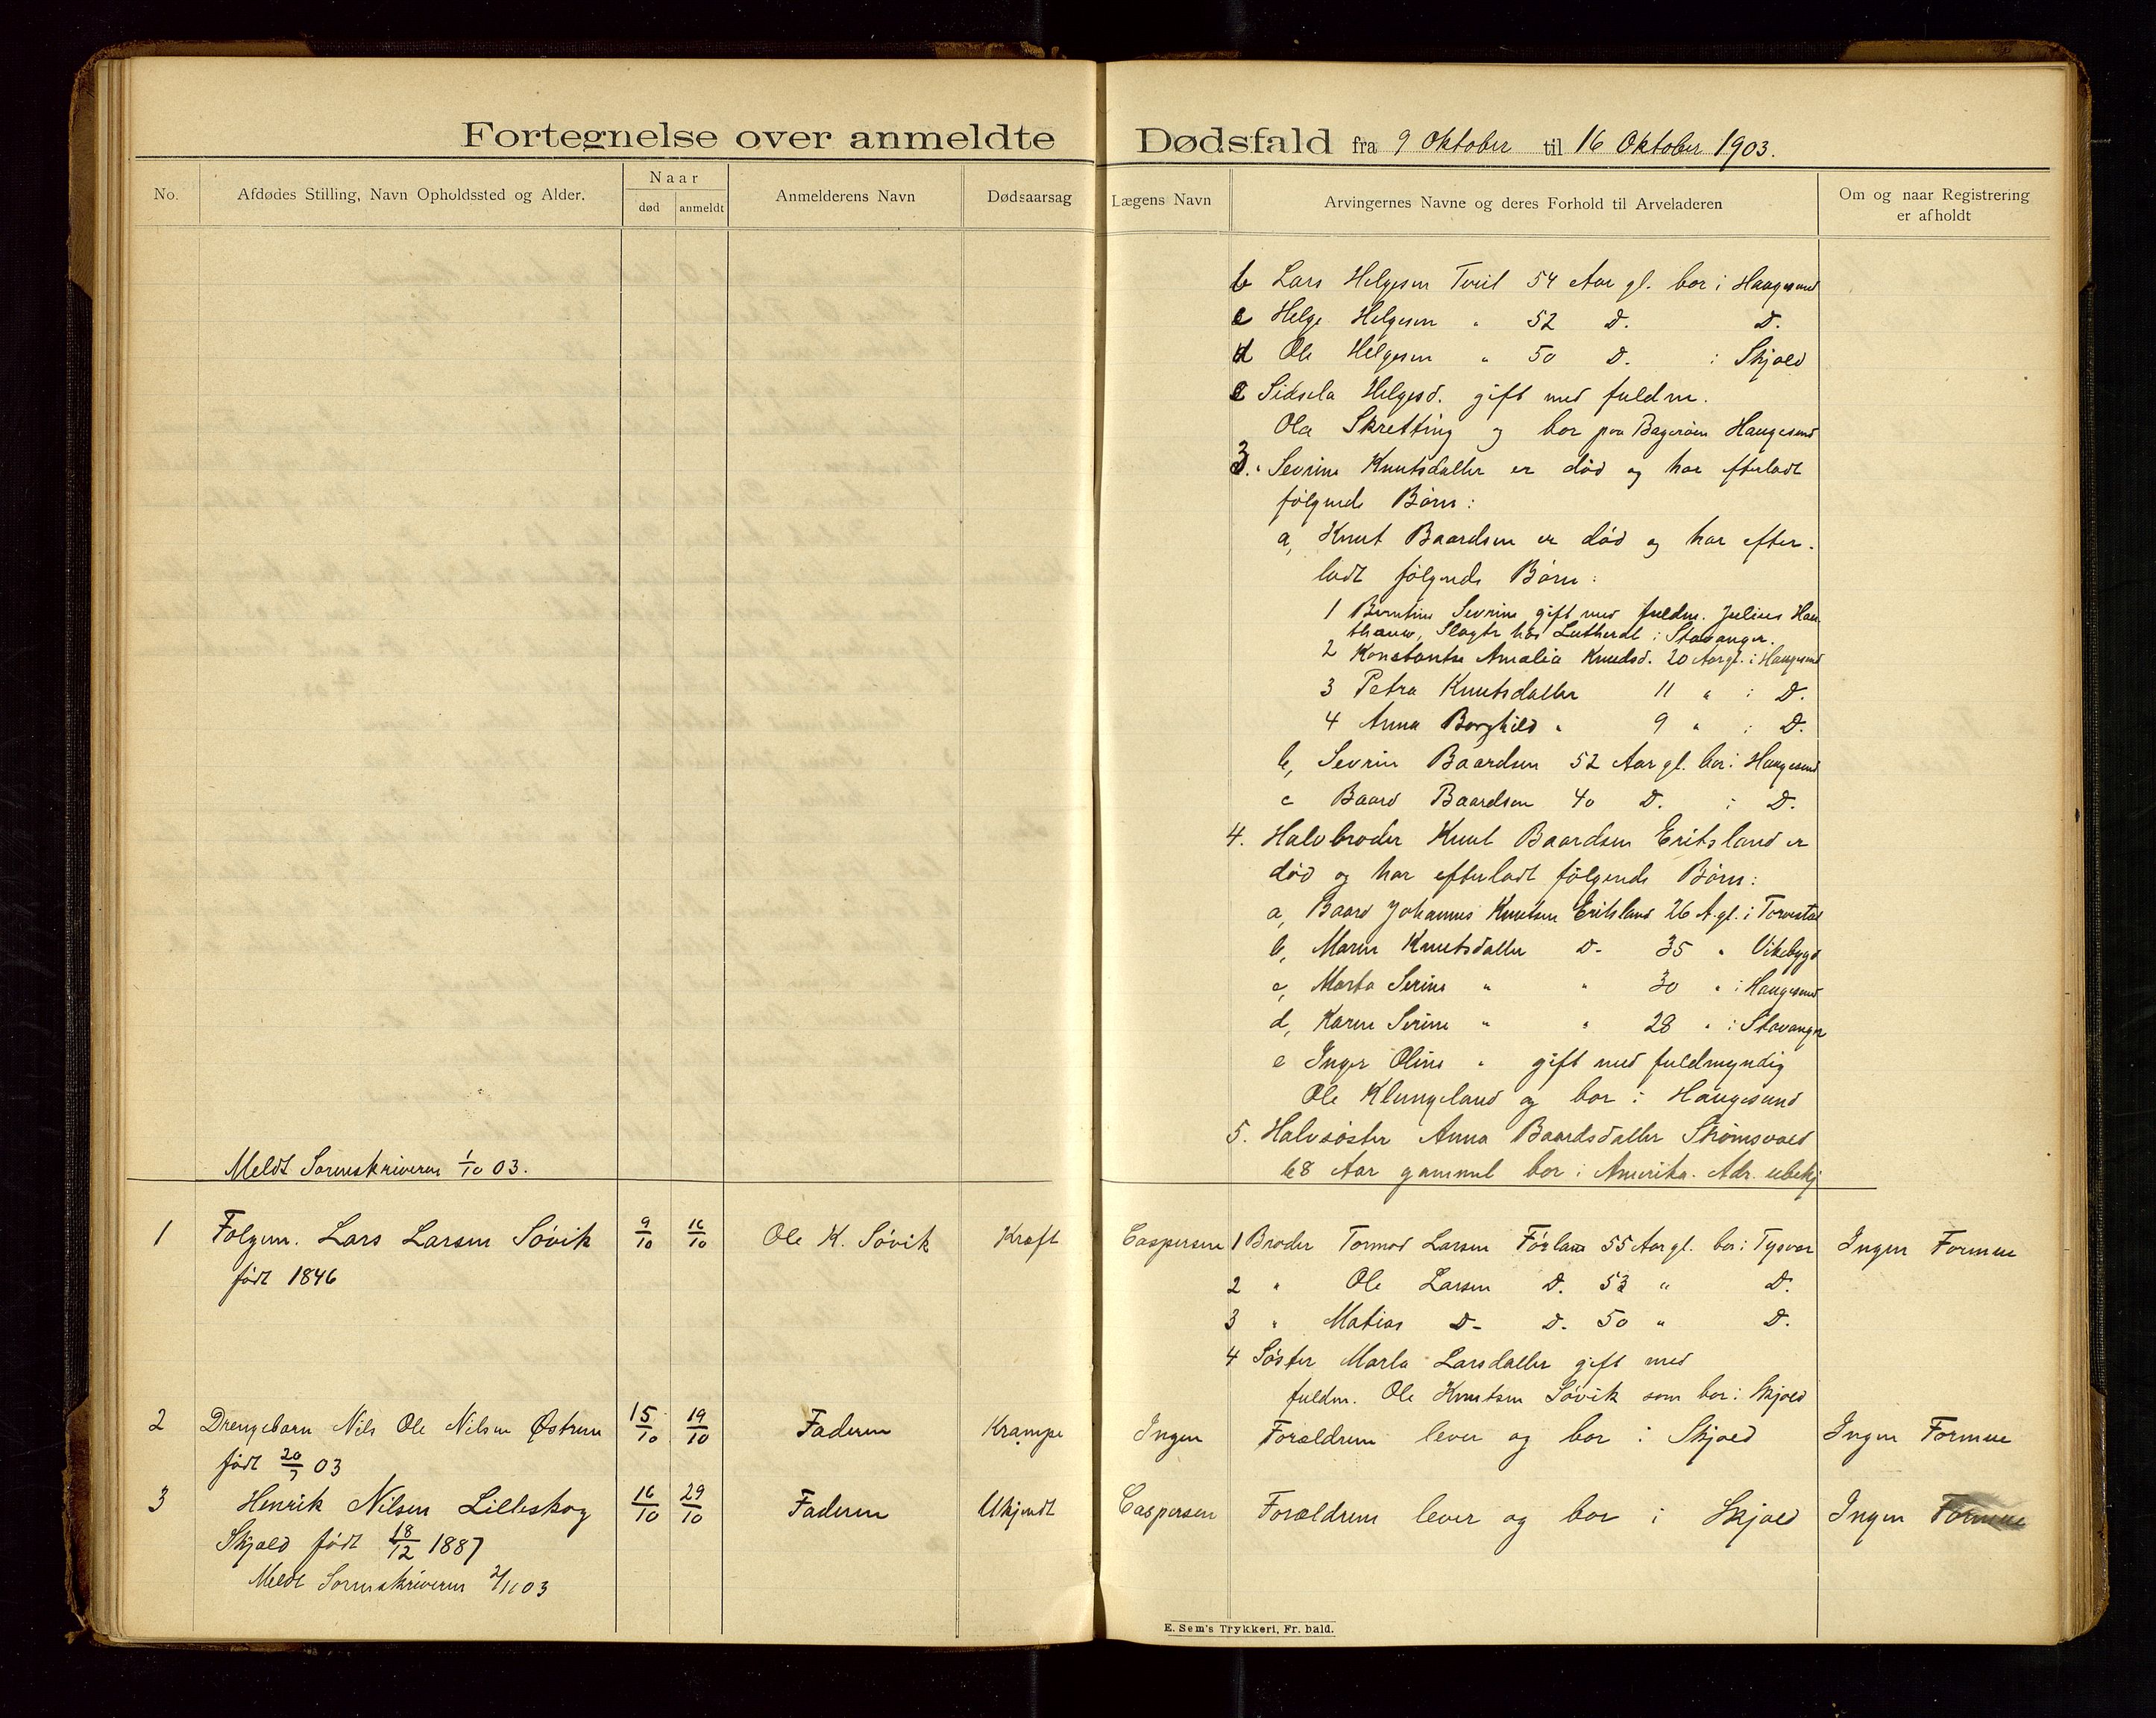 Fortegnelse over anmeldte Dødsfald fra 9 Oktober til 16 Oktober 1903.
No.
Afdødes Stilling, Navn Opholdssted og Alder.
Naar
død
anmeldt
Anmelderens Navn
Dødsaarsag
Lægens Navn
Arvingernes Navne og deres Forhold til Arveladeren
Om og naar Registrering
er afholdt
b Lars Helgesen Tveit 54 Aar gl. bor i Haugesund
c Helge Helgesen " 52 D. D.
d Ole Helgesen " 50 D. i Skjold
e Sidsela Helgesd. gift med fuldm.
Ola Skretting og bor paa Bagerøen Haugesund
3. Sevrine Knutsdatter er død og har efterladt
følgende Børn:
a, Knut Baardsen er død og har efter-
ladt følgende Børn:
1 Berntine Sevrine gift med fuldm. Julius Hau
thauw, Slagter hos Lutherdt i Stavanger.
2 Konstantse Amalia Knudsd. 20 Aar gl. i Haugesund
3 Petra Knutsdatter 11 " i D.
4 Anna Borghild " 9 " i D.
b, Sevrin Baardsen 52 Aar gl. bor i Haugesund
c Baard Baardsen 40 D. i D.
4. Halvbroder Knut Baardsen Eritsland er
død og har efterladt følgende Børn:
a, Baard Johannes Knutsen Eritsland 26 A. gl. i Torvestad
b, Maren Knutsdatter D. 35 " Vikebygd
c, Marta Serine " " 30 " i Haugesund
d, Karen Serine " " 28 " i Stavanger
e Inger Oline " gift med fuldmyndig
Ole Klungeland og bor i Haugesund
5. Halvsøster Anna Baardsdatter Strømsvold
68 Aar gammel bor i Amerika. Adr. ubekj
Meldt Sorenskriveren 1/10 03.
1 Folgem. Lars Larsen Søvik 9/10 16/10 Ole K. Søvik Kræft Caspersen 1 Broder Tormod Larsen Førland 55 Aar gl. bor i Tysvær Ingen Formue
født 1846
2 " Ole Larsen D. 53 " D.
3 " Matias D- D. 50 " D.
4 Søster Marta Larsdatter gift med
fuldm. Ole Knutsen Søvik som bor i Skjold
2 Drengebarn Nils Ole Nilsen Østrem 15/10 19/10 Faderen Krampe Ingen Forældrene lever og bor i Skjold Ingen Formue
født 20/7 03
3 Henrik Nilsen Lilleskog 16/10 29/10 Faderen Ukjendt Caspersen Forældrene lever og bor i Skjold Ingen Formue
Skjold født 18/12 1887
Meldt Sorenskriveren 2/11 03
E. Sem's Trykkeri, Fr. hald.